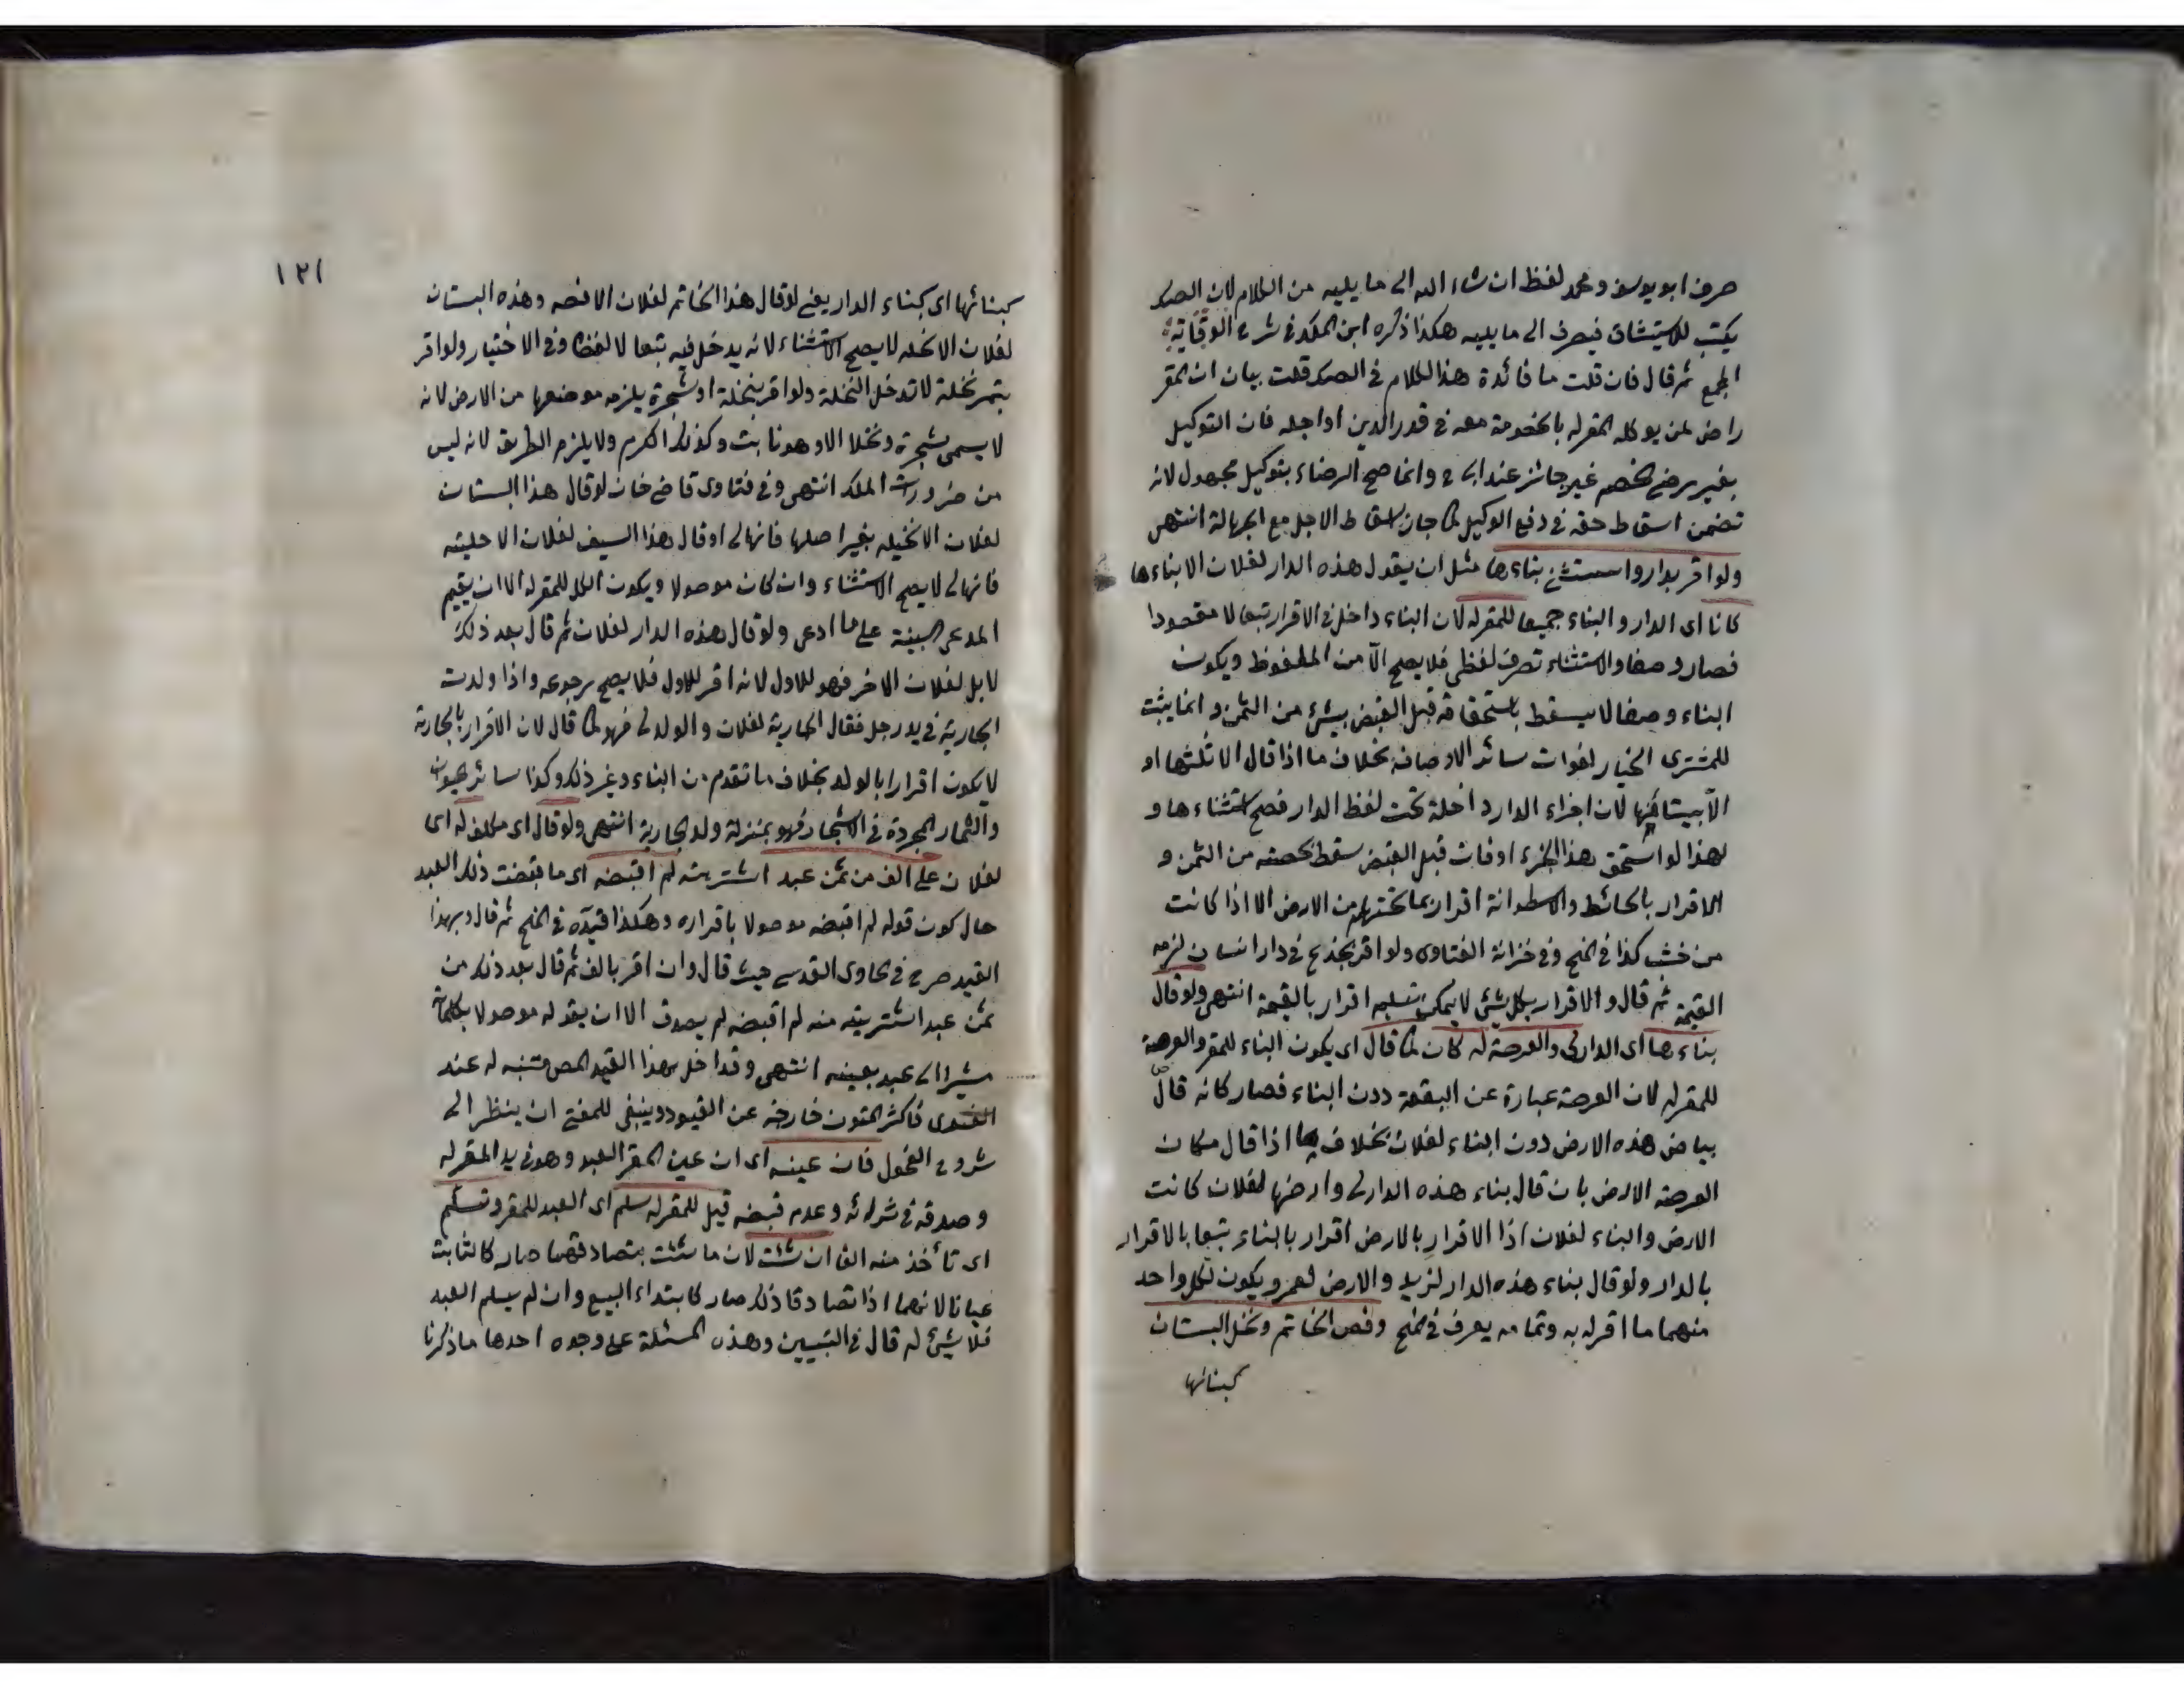 صرف ابو يوسف ومحمد لفظ ان شاء الله الى ما يليه من الكلام لان الصك
يكتب للاستيثاق فيصرف الى ما يليه هكذا ذكره ابن الملك في شرح الوقاية
المجمع ثم قال فان قلت ما فائدة هذا الكلام في الصك قلت بيان ان المقر
راض لمن يوكله المقر له بالخصومة معه في قدر الدين او اجله فان التوكيل
بغير رضى الخصم غير جائز عند ابي ح وانما صح الرضاء بتوكيل مجهول لانه
تضمن اسقاط حقه في دفع الوكيل كما جاز اسقاط الاجل مع الجهالة انتهى
ولو اقر بدار واستثنى بناءها مثل ان يقول هذه الدار لفلان الا بناءها
كانا اى الدار والبناء جميعا للمقر له لان البناء داخل في الاقرار تبعا لا مقصودا
فصار وصفا والاستثناء تصرف لفظي فلا يصح الا من الملفوظ ويكون
البناء وصفا لا يسقط باستحقاقه قبل القبض بشئ من الثمن وانما يثبت
للمشترى الخيار لفوات سائر الاوصاف بخلاف ما اذا قال الا ثلثها او
الا بيتا منها لان اجزاء الدار داخلة تحت لفظ الدار فصح استثناءها و
لهذا لو استحق هذا الجزء او فات قبل القبض سقط بحصته من الثمن و
الاقرار بالحائط والاسطوانة اقرار بما تحتهما من الارض الا اذا كانت
من خشب كذا في المنح وفي خزانة الفتاوى ولو اقر بجذع في دار انسان لزمه
القيمة ثم قال والاقرار بكل شئ لا يمكن تسليمه اقرار بالقيمة انتهى ولو قال
بناءها اى الدار لى والعرصة له كان كما قال اى يكون البناء للمقر والعرصة
للمقر له لان العرصة عبارة عن البقعة دون البناء فصار كانه قال
بياض هذه الارض دون البناء لفلان بخلاف ما اذا قال مكان
العرصة الارض بان قال بناء هذه الدار لى وارضها لفلان كانت
الارض والبناء لفلان اذا الاقرار بالارض اقرار بالبناء تبعا بالاقرار
بالدار ولو قال بناء هذه الدار لزيد والارض لعمرو يكون لكل واحد
منهما ما اقر له به وتمامه يعرف في المنح وفص الخاتم ونخل البستان
كبنائها
١٢١
كبنائها اى كبناء الدار يعني لو قال هذا الخاتم لفلان الا فصه وهذه البستان
لفلان الا نخله لا يصح الاستثناء لانه يدخل فيه تبعا لا لفظا وفي الاختيار ولو اقر
بتمر نخلة لا تدخل النخلة ولو اقر بنخلة او شجرة يلزمه موضعها من الارض لانه
لا يسمى شجرة ونخلا الا وهو نابت وكذلك الكرم ولا يلزم الطريق لانه ليس
من ضرورات الملك انتهى وفي فتاوى قاضي خان لو قال هذا البستان
لفلان الا نخيله بغير اصلها فانها لى او قال هذا السيف لفلان الا حليته
فانها لى لا يصح الاستثناء وان كان موصولا ويكون الكل للمقر له الا ان يقيم
المدعى البينة على ما ادعى ولو قال هذه الدار لفلان ثم قال بعد ذلك
لا بل لفلان الاخر فهو للاول لانه اقر للاول فلا يصح رجوعه واذا ولدت
الجارية في يد رجل فقال الجارية لفلان والولد لى فهو كما قال لان الاقرار بالجارية
لا يكون اقرارا بالولد بخلاف ما تقدم من البناء وغير ذلك وكذا سائر الحيوان
والثمار المجردة في الاشجار فهو بمنزلة ولد الجارية انتهى ولو قال اى مكلف له اى
لفلان على الف من ثمن عبد اشتريته لم اقبضه اى ما قبضت ذلك العبد
حال كون قوله لم اقبضه موصولا باقراره وهكذا قيده في المنح ثم قال وبهذا
القيد صرح في الحاوى القدسي حيث قال وان اقر بالف ثم قال بعد ذلك من
ثمن عبد اشتريته منه لم اقبضه لم يصدق الا ان يقوله موصولا بكلامه
مشيرا الى عبد بعينه انتهى وقد اخل بهذا القيد المص فتنبه له عند
الفتوى فاكثر المتون خارجة عن القيود وينبغي للمفتي ان ينظر الى
شروح الفحول فان عينه اى ان عين المقر العبد وهو في يد المقر له
وصدقه في شرائه وعدم قبضه قيل للمقر له سلم اى العبد للمقر وتسلم
اى تأخذ منه الفا ان شئت لان ما شئت بتصادقهما صار كالثابت
عيانا لانهما اذا تصادقا ذلك صار كابتداء البيع وان لم يسلم العبد
فلا شئ له قال في التبيين وهذه المسئلة على وجوه احدها ما ذكرنا